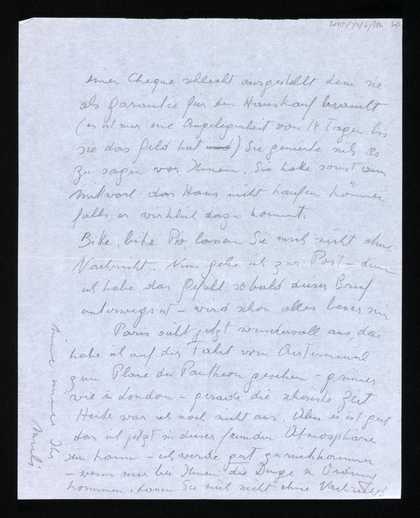 einen Cheque schlecht ausgestellt dem sie
als Garantie für den Hauskauf braucht
(es ist nur eine Angelegenheit von 14 Tagen bis
sie das Geld hat) Sie genierte sich es
zu sagen vor Ihnen. Sie habe sonst um
das Haus nicht kaufen können
falls es wirklich dazu kommt.
Bitte, bitte lassen Sie mich nicht ohne
Nachricht. Nun gehe ich zur Post – denn
ich habe das Gefühl sobald dieser Brief
unterwegs ist – wird schon alles besser
Paris sieht jetzt wundervoll aus, das
habe ich auf der Fahrt vom
zum Place du Pantheon gesehen –
wie in London – gerade die schönste Zeit
Heute war ich noch nicht aus. Aber es ist gut
das ich jetzt in dieser Atmosphäre
sein kann – ich werde gut zurückkommen
– wenn nur bei Ihnen die Dinge in Ordnung
kommen, lassen Sie mich nicht ohne Nachricht!